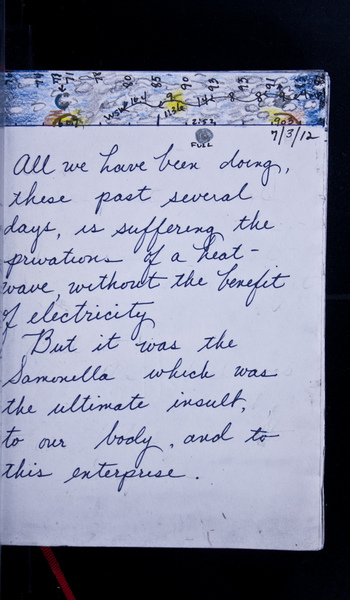 74
71
78
80
85
90
93
95
91
1126
2:53
FULL
7/3/12
All we have been doing,
these past several
days, is suffering the
privations of a heat-
wave, without the benefit
of electricity
But it was the
Samonella which was
the ultimate insult,
to our body, and to
this enterprise.